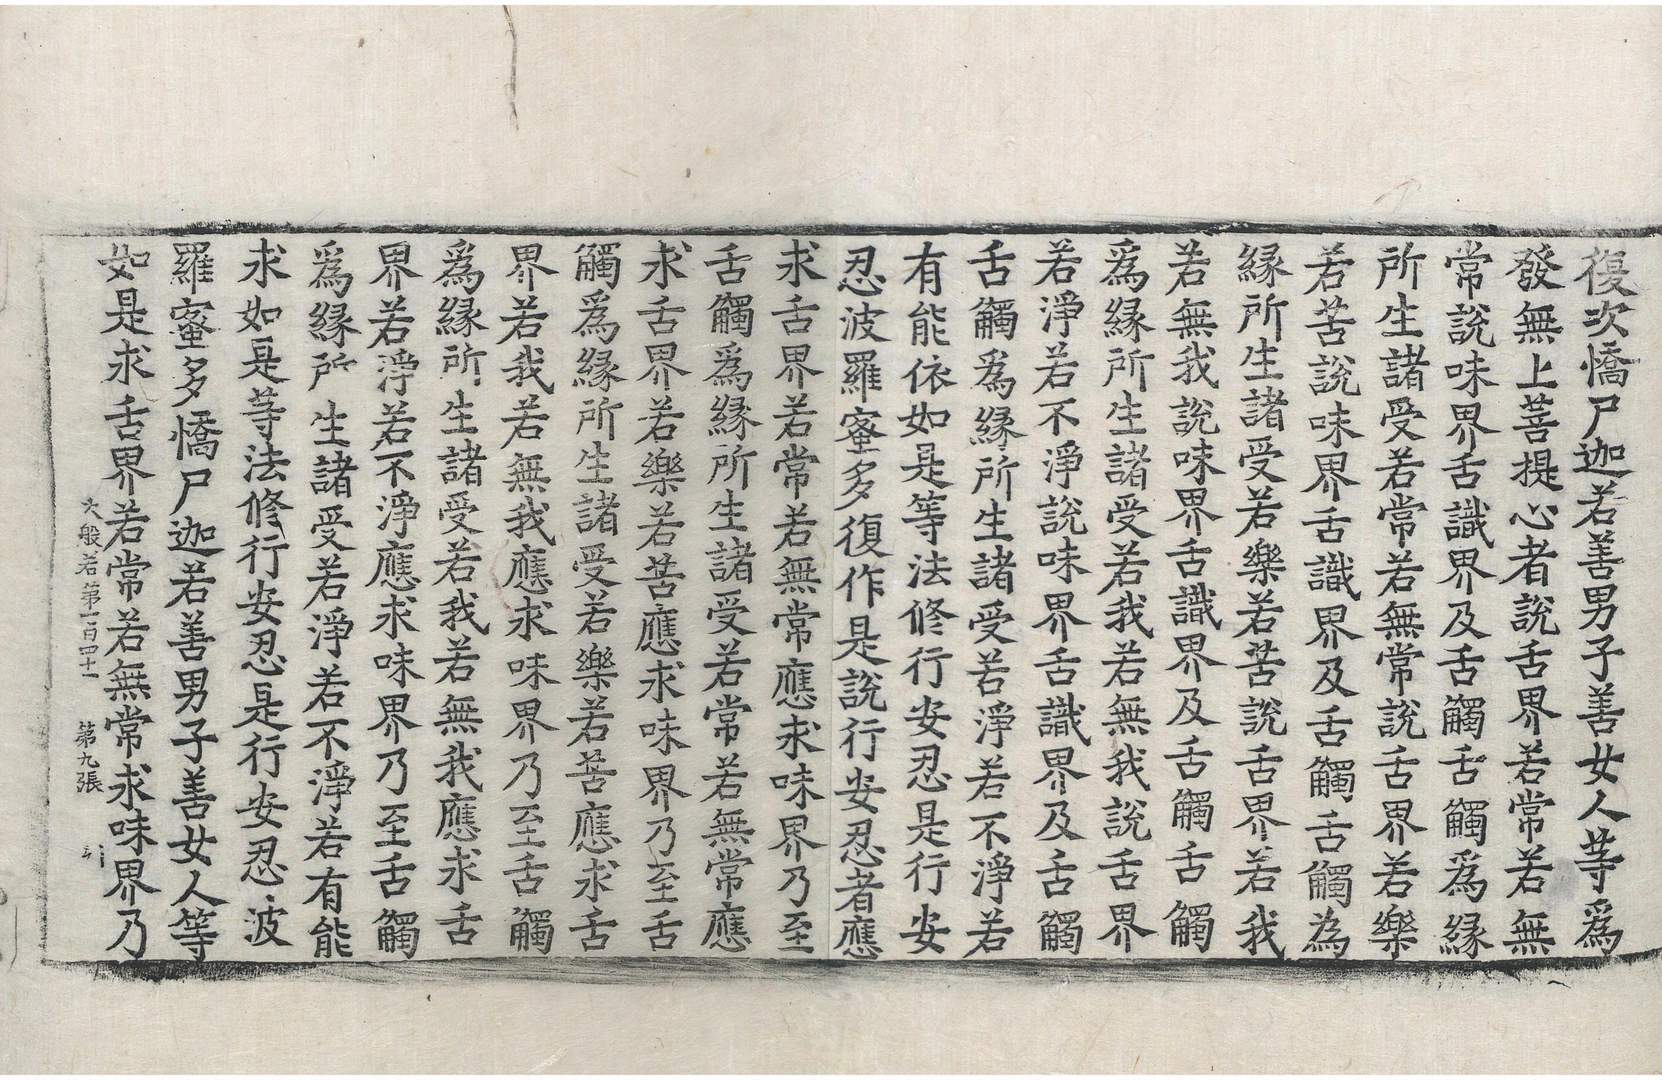 復次憍尸迦若善男子善女人等爲
發無上菩提心者說舌界若常若無
常說味界舌識界及舌觸舌觸爲緣
所生諸受若常若無常說舌界若樂
若苦說味界舌識界及舌觸舌觸為
緣所生諸受若樂若苦說舌界若我
若無我說味界舌識界及舌觸舌觸
爲緣所生諸受若我若無我說舌界
若淨若不淨說味界舌識界及舌觸
舌觸爲緣所生諸受若淨若不淨若
有能依如是等法修行安忍是行安
忍波羅蜜多復作是說行安忍者應
求舌界若常若無常應求味界乃至
舌觸爲緣所生諸受若常若無常應
求舌界若樂若苦應求味界乃至舌
觸爲緣所生諸受若樂若苦應求舌
界若我若無我應求味界乃至舌觸
爲緣所生諸受若我若無我應求舌
界若淨若不淨應求味界乃至舌觸
爲緣所生諸受若淨若不淨若有能
求如是等法修行安忍是行安忍波
羅蜜多憍尸迦若善男子善女人等
如是求舌界若常若無常求味界乃
大般若第一百四十一 第九張